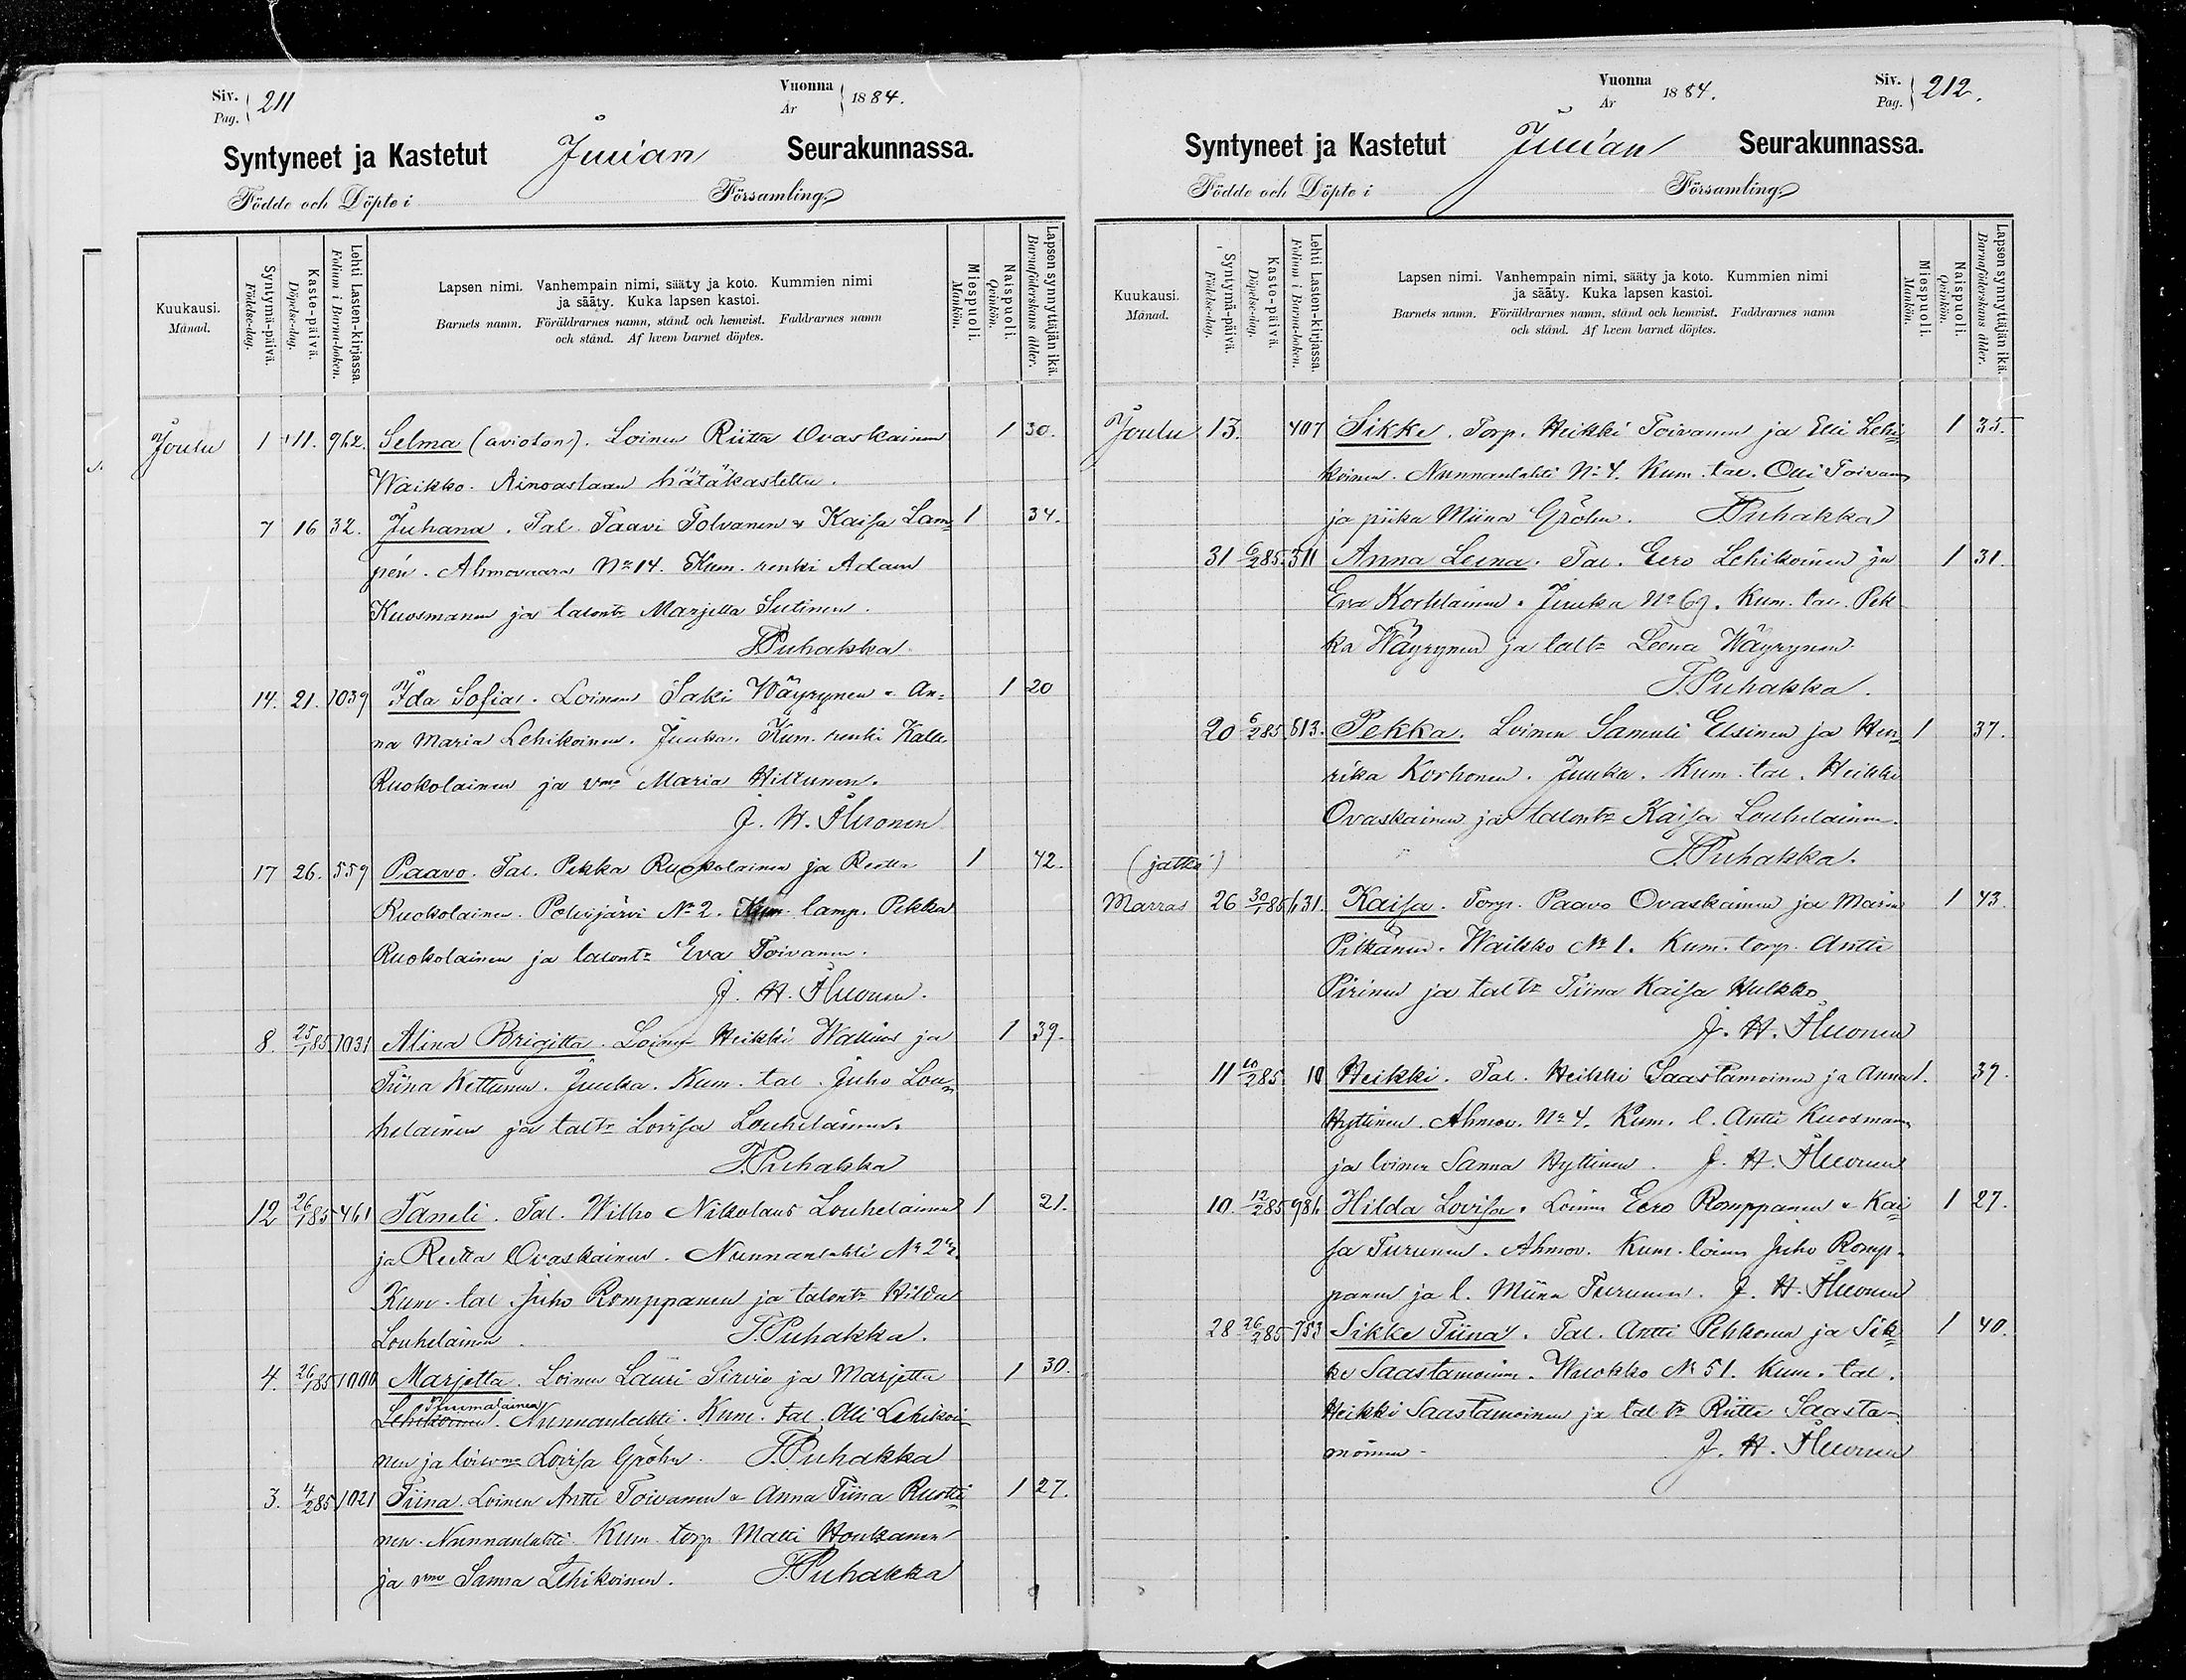 Siv. Pag. 211
Vuonna År 1884.
Syntyneet ja Kastetut Juuan Seurakunnassa.
Födde och Döpte i Församling
Kuukausi. Månad.
Syntymä-päivä. Födelse-dag.
Kasto-päivä. Döpelse-dag.
Lehti Lasten-kirjassa. Folium i Barna-boken.
Lapsen nimi. Vanhempain nimi, sääty ja koto. Kummien nimi
ja sääty. Kuka lapsen kastoi.
Barnets namn. Föräldrarnes namn, stånd och hemvist. Faddrarnes namn
och stånd. Af hvem barnet döptes.
Miespuoli. Mankön.
Naispuoli. Qvinkön.
Lapsen synnyttäjän ikä. Barnaföderskans ålder.
Joulu 1 11. 962. Selma (avioton). Loinen Riitta Ovaskainen 1 30.
Waikko. Ainoastaan hätäkastettu.
7 16 32. Juhana. Tal. Taavi Tolvanen & Kaisa Lam- 1 34.
pén. Ahmovaara No 14. Kum. renki Adam
Kuosmanen ja talontr Marjetta Sutinen.
F. Puhakka
14. 21. 1039 Ida Sofia. Loinen Saki Wäyrynen & An- 1 20
na Maria Lehikoinen. Juuka. Kum. renki Kalle
Ruokolainen ja vmo Maria Hiltunen.
J. H. Huonen
17 26. 559 Paavo. Tal. Pekka Ruokolainen ja Reetta 1 42.
Ruokolainen. Polvijärvi No 2. Kum. lamp. Pekka
Ruokolainen ja talontr Eva Toivanen.
J. H. Huonen.
8. 25/1 85 1031 Alina Brigitta. Loinen Heikki Wallius ja 1 39.
Tiina Kettunen. Juuka. Kum. tal. Juho Lou-
helainen ja taltr Lovisa Louhelainen.
F. Puhakka
12 26/1 85 461 Taneli. Tal. Wilho Nikolaus Louhelainen 1 21.
ja Reetta Ovaskainen. Nunnanlahti No 2
Kum. tal. Juho Romppanen ja talontr Hilda
Louhelainen. F. Puhakka.
4. 26/1 85 1000 Marjetta. Loinen Lauri Sirviö ja Marjetta 1 30.
Lehikoinen. Nunnanlahti. Kum. tal. Olli Lehikoi-
nen ja Lovisa Gröhn. F. Puhakka
3. 4/2 85 1021 Tiina. Loinen Antti Toivanen & Anna Tiina Ruotti- 1 27.
nen. Nunnanlahti. Kum. torp. Matti Honkanen
ja vmo Sanna Lehikoinen. F. Puhakka
Vuonna År 1884.
Siv. Pag. 212.
Syntyneet ja Kastetut Juuan Seurakunnassa.
Födde och Döpte i Församling
Kuukausi. Månad.
Syntymä-päivä. Födelse-dag.
Kasto-päivä. Döpelse-dag.
Lehti Lasten-kirjassa. Folium i Barna-boken.
Lapsen nimi. Vanhempain nimi, sääty ja koto. Kummien nimi
ja sääty. Kuka lapsen kastoi.
Barnets namn. Föräldrarnes namn, stånd och hemvist. Faddrarnes namn
och stånd. Af hvem barnet döptes.
Miespuoli. Mankön.
Naispuoli. Qvinkön.
Lapsen synnyttäjän ikä. Barnaföderskans ålder.
Joulu 13. 407 Sikke. Torp. Heikki Toivanen ja Elli Lehi- 1 35.
koinen. Nunnanlahti No 4. Kum. tal. Olli Toivanen
ja piika Miina Gröhn. F. Puhakka
31 6/2 85. 511 Anna Leena. Tal. Eero Lehikoinen ja 1 31.
Eva Korhlainen. Juuka No 69. Kum. tal. Pek-
ka Wäyrynen ja taltr Leena Wäyrynen.
F. Puhakka.
20 6/2 85 813. Pekka. Loinen Samuli Elsinen ja Hen- 1 37.
rika Korhonen. Juuka. Kum. tal. Heikki
Ovaskainen ja talontr Kaisa Louhelainen.
F. Puhakka.
(jatko)
Marras 26 30/1 85 631. Kaisa. Torp. Paavo Ovaskainen ja Maria 1 43.
Pitkänen. Waikko No 1. Kum. torp. Antti
Pirinen ja taltr Tiina Kaisa Hulkko
J. H. Huonen
11 10/2 85. 10 Heikki. Tal. Heikki Saastamoinen ja Anna 1. 39.
Hyttinen. Ahmov. No 4. Kum. l. Antti Kuosmanen
ja loinen Sanna Hyttinen. J. H. Huonen
10. 12/2 85 986 Hilda Lovisa. Loinen Eero Romppanen & Kai- 1 27.
sa Turunen. Ahmov. Kum. loinen Juho Romp-
panen ja l. Miina Turunen. J. H. Huonen
28 26/2 85 753 Sikke Tiina. Tal. Antti Pehkonen ja Sik- 1 40.
ke Saastamoinen. Wuokko No 51. Kum. tal.
Heikki Saastamoinen ja taltr Riitta Saasta-
moinen. J. H. Huonen